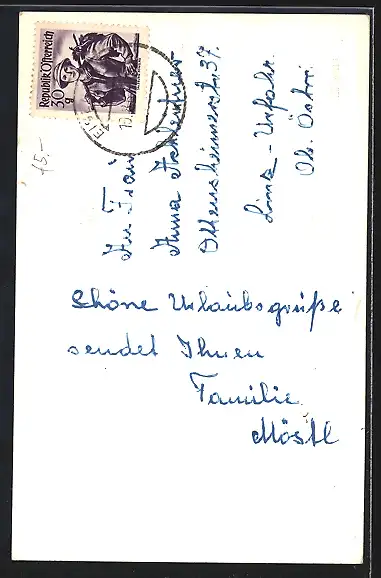 Republik Österreich
30
g
15,-
An Frau
Anna
Ottensheimerstr. 37
Linz - Urfahr
Ob. Östr.
Schöne Urlaubsgrüße
sendet Ihnen
Familie
Möstl